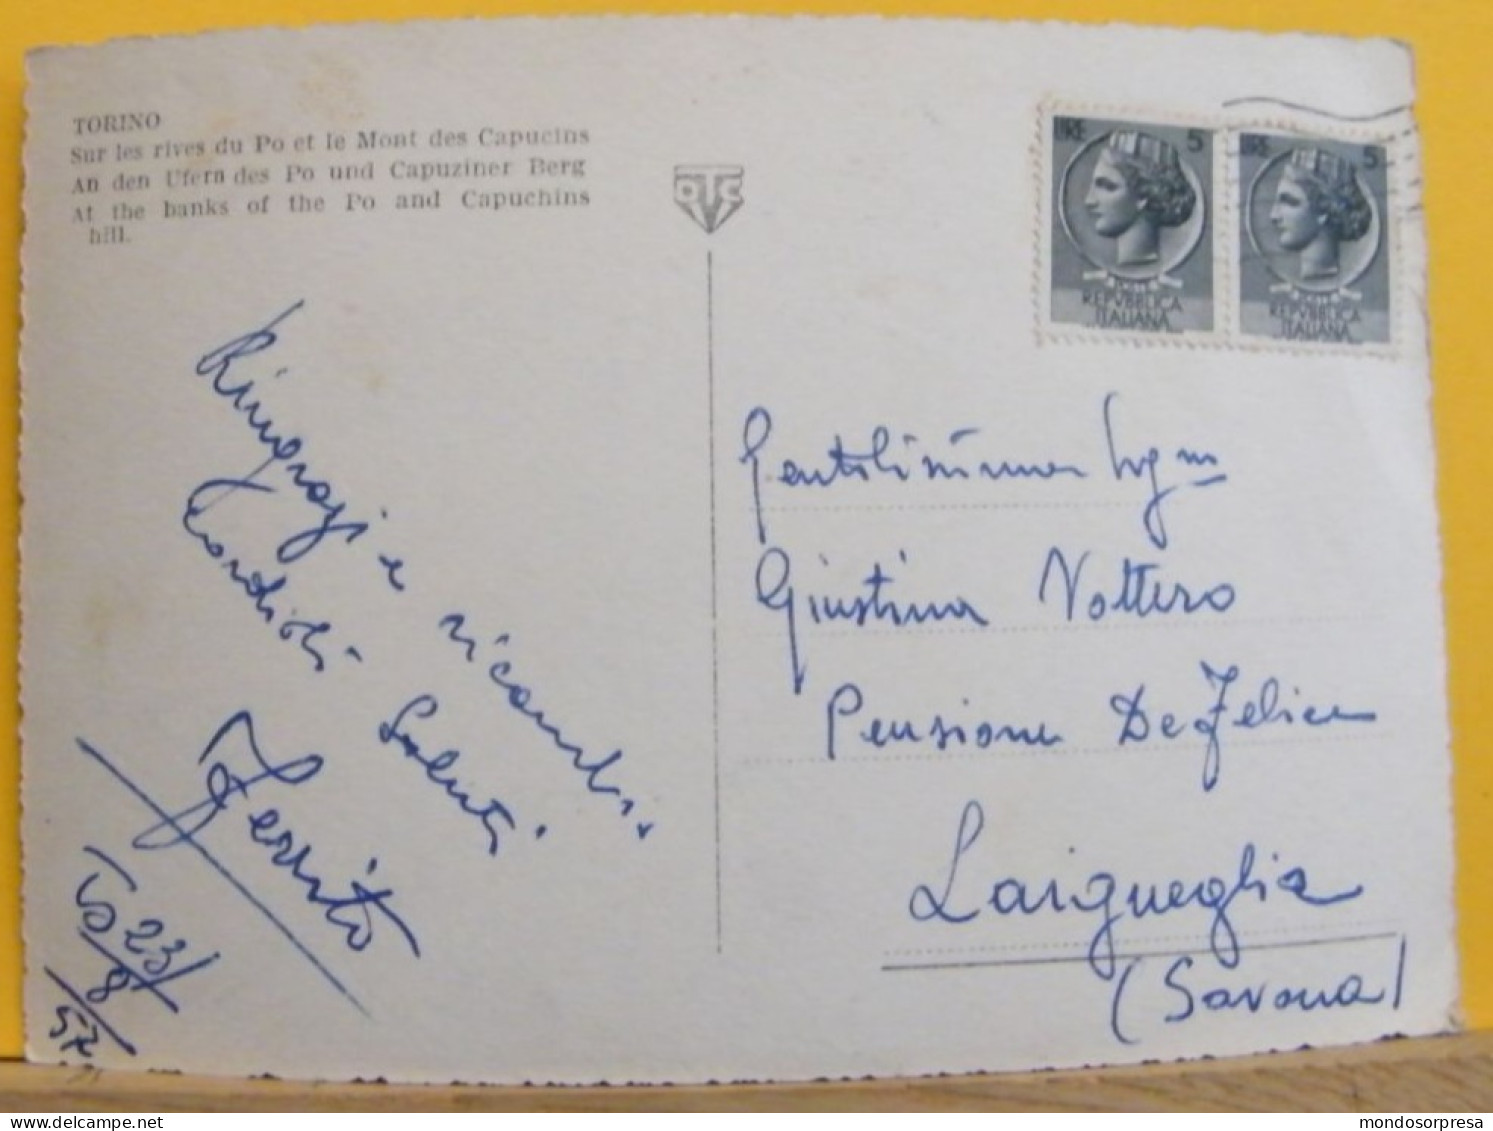 TORINO
Sur les rives du Po et le Mont des Capucins
An den Ufern des Po und Capuziner Berg
At the banks of the Po and Capuchins
hill.
OTC
LIRE 5
POSTE
REPVBBLICA
ITALIANA
LIRE 5
POSTE
REPVBBLICA
ITALIANA
Ringrazi e ricambi
Cordiali Saluti
To 23/
8
57
Gentilissima Sig na
Giustina Vottero
Pensione De Felice
Laigueglia
(Savona)
delcampe.net
mondosorpresa